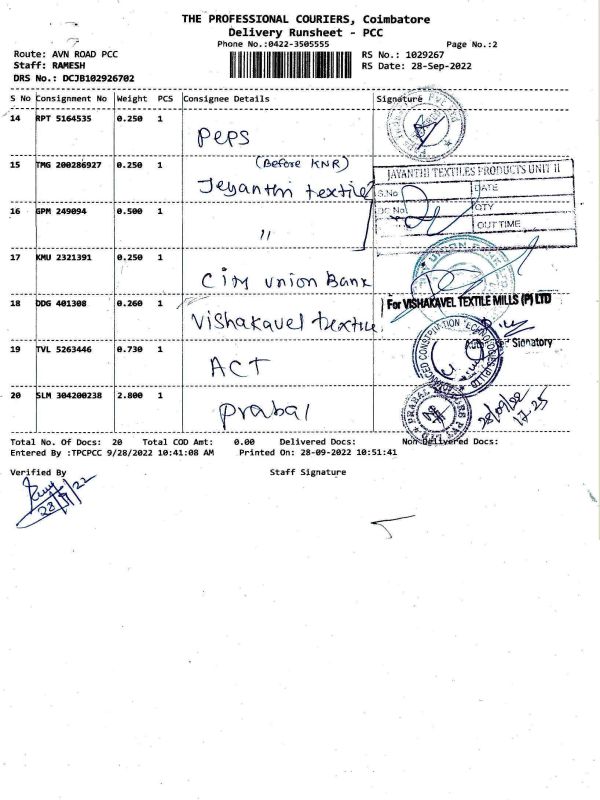 THE PROFESSIONAL COURIERS, Coimbatore
Delivery Runsheet - PCC
Phone No.:0422-3505555 Page No.:2
Route: AVN ROAD PCC RS No.: 1029267
Staff: RAMESH RS Date: 28-Sep-2022
DRS No.: DCJB102926702
S No Consignment No Weight PCS Consignee Details Signature
14 RPT 5164535 0.250 1
Peps
15 TMG 200286927 0.250 1 (Before KNR)
Jeyanthi textile
JAYANTHI TEXTILES PRODUCTS UNIT II
S.No DATE
DC No QTY
OUT TIME
16 GPM 249094 0.500 1
"
17 KMU 2321391 0.250 1
City union Bank
18 DDG 401308 0.260 1
For VISHAKAVEL TEXTILE MILLS (P) LTD
Vishakavel textile
Signatory
19 TVL 5263446 0.730 1
ACT
20 SLM 304200238 2.800 1
Prabal
17-25
Total No. Of Docs: 20 Total COD Amt: 0.00 Delivered Docs: Non-Delivered Docs:
Entered By :TPCPCC 9/28/2022 10:41:08 AM Printed On: 28-09-2022 10:51:41
Verified By Staff Signature
28/9/22